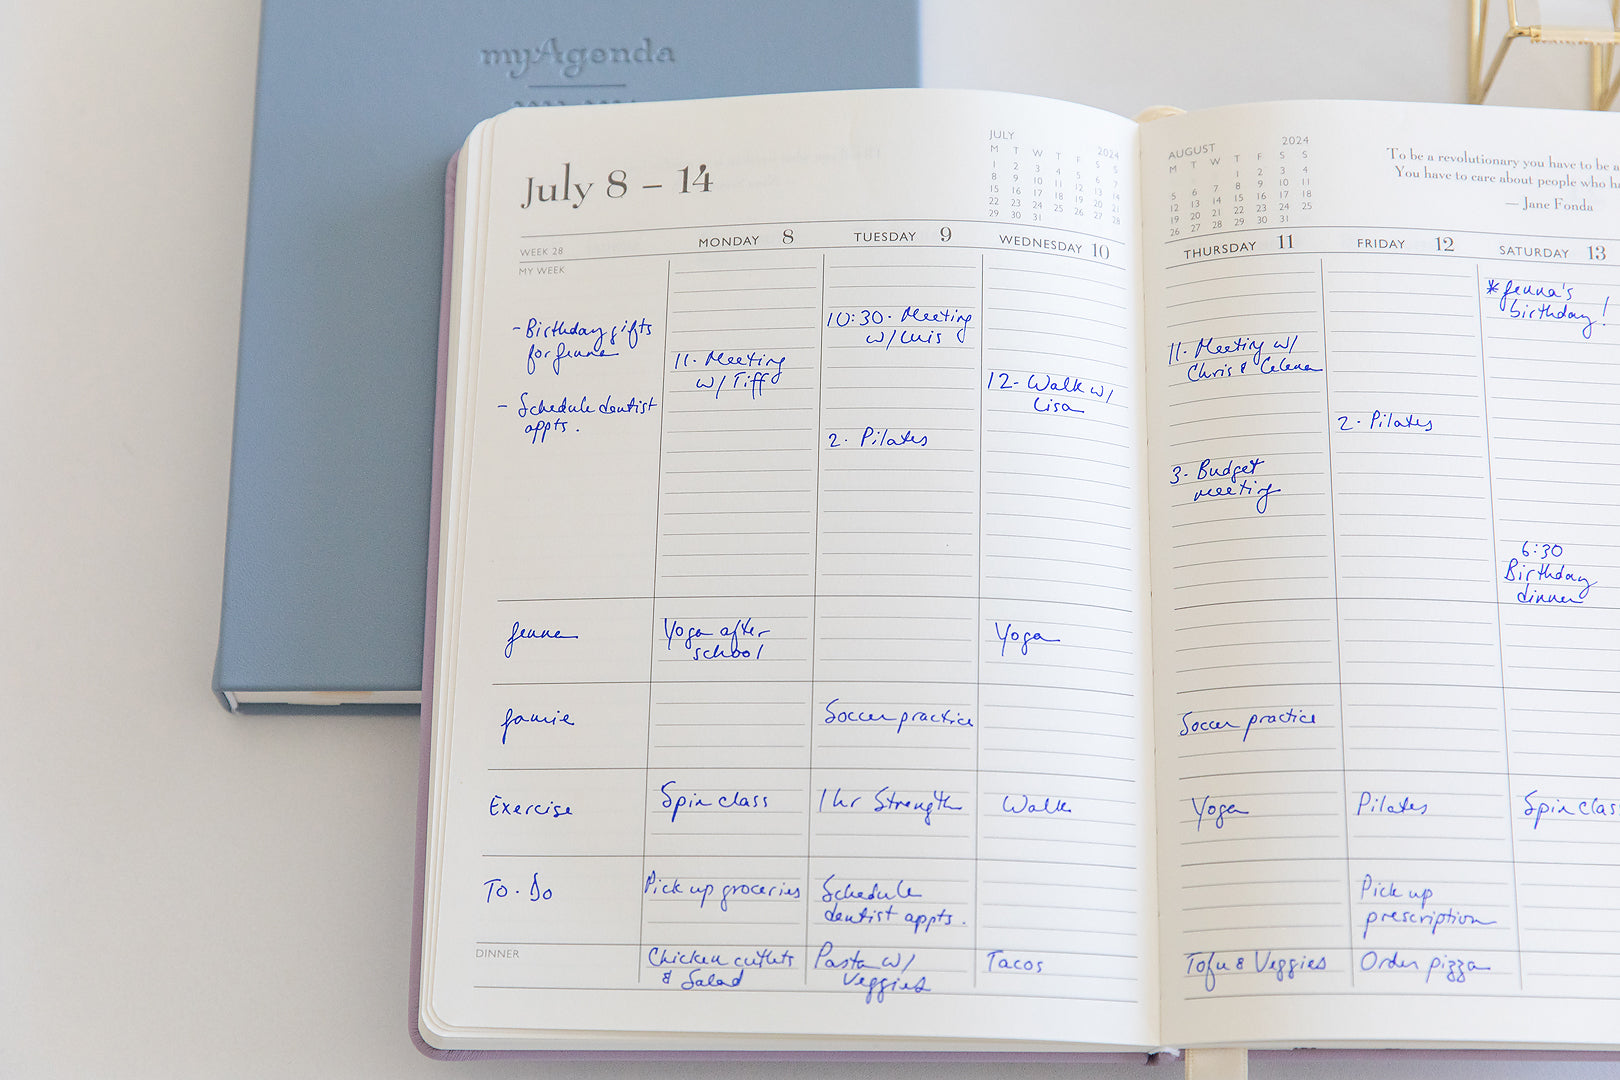 myAgenda
July 8 – 14
JULY 2024
M T W T F S S
1 2 3 4 5 6 7
8 9 10 11 12 13 14
15 16 17 18 19 20 21
22 23 24 25 26 27 28
29 30 31
WEEK 28
MONDAY 8
TUESDAY 9
WEDNESDAY 10
MY WEEK
- Birthday gifts
for Jenna
- Schedule dentist
appts.
11. Meeting
w/ Tiff
10:30. Meeting
w/ Luis
2. Pilates
12- Walk w/
Lisa
Jenna
Yoga after
school
Yoga
Jamie
Soccer practice
Exercise
Spin class
1 hr Strength
Walk
To-Do
Pick up groceries
Schedule
dentist appts.
DINNER
Chicken cutlets
& Salad
Pasta w/
Veggies
Tacos
AUGUST 2024
M T W T F S S
1 2 3 4
5 6 7 8 9 10 11
12 13 14 15 16 17 18
19 20 21 22 23 24 25
26 27 28 29 30 31
To be a revolutionary you have to be a
You have to care about people who ha
— Jane Fonda
THURSDAY 11
FRIDAY 12
SATURDAY 13
11. Meeting w/
Chris & Celena
3. Budget
meeting
2. Pilates
*Jenna's
birthday!
6:30
Birthday
dinner
Soccer practice
Yoga
Pilates
Spin clas
Pick up
prescription
Tofu & Veggies
Order pizza